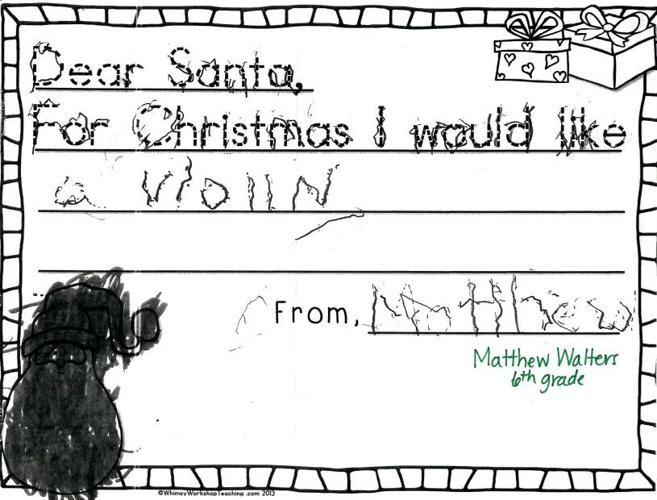 Dear Santa,
For Christmas I would like
a violin
From, Matthew
Matthew Walters
6th grade
©WhimsyWorkshopTeaching.com 2013